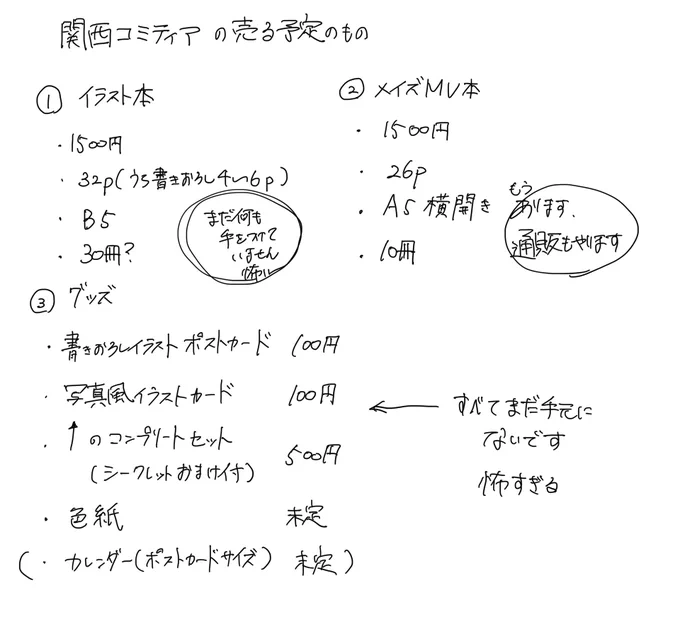 関西コミティアの売る予定のもの
① イラスト本
・1500円
・32p(うち書きおろし4〜6p)
・B5
・30冊?
まだ何も
手をつけて
いません
怖い
② メイズMV本
・1500円
・26p
・A5 横開き
・10冊
もう
あります、
通販もやります
③ グッズ
・書きおろしイラスト ポストカード 100円
・写真風イラストカード 100円
・↑のコンプリートセット 500円
(シークレットおまけ付)
・色紙 未定
(・カレンダー(ポストカードサイズ) 未定)
← すべてまだ手元に
ないです
怖すぎる